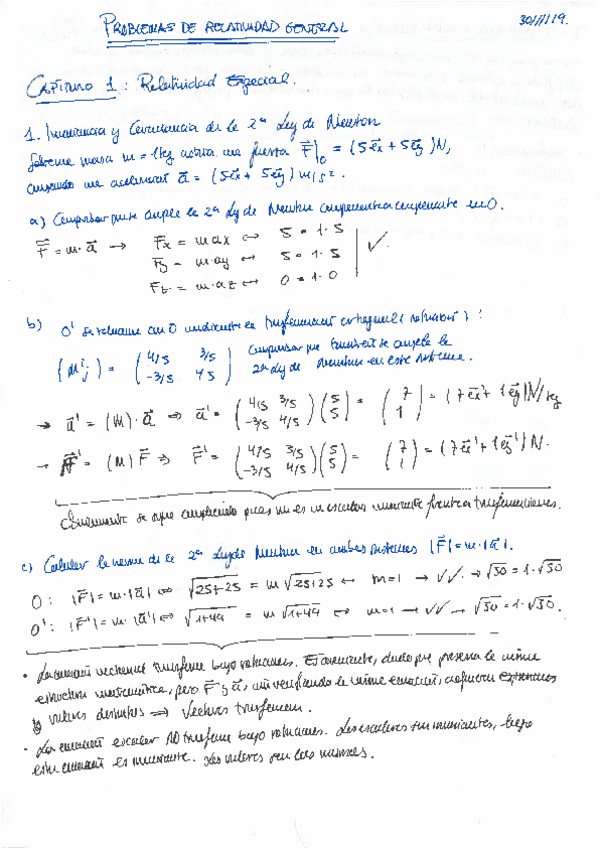 PROBLEMAS DE RELATIVIDAD GENERAL
CAPITULO 1: Relatividad Especial.
1. Invariancia y Covariancia de la 2ª Ley de Newton
Sobre una masa m = 1kg actúa una fuerza F⃗|₀ = (5e⃗x + 5e⃗y) N,
causando una aceleración a⃗ = (5e⃗x + 5e⃗y) m/s².
a) Comprobar que se cumple la 2ª Ley de Newton componente a componente en O.
F⃗ = m·a⃗ → Fx = m ax ↔ 5 = 1·5
Fy = m·ay ↔ 5 = 1·5 ✓
Fz = m·az ↔ 0 = 1·0
b) O' se relaciona con O mediante la transformación ortogonal (rotación):
(M^i_j) = (4/5 3/5 / -3/5 4/5) Comprobar que también se cumple la
2ª Ley de Newton en este sistema.
→ a⃗' = (M)·a⃗ ⇒ a⃗' = (4/5 3/5 / -3/5 4/5)(5 / 5) = (7 / 1) = (7e⃗x' + 1e⃗y') N/kg
→ F⃗' = (M) F⃗ ⇒ F⃗' = (4/5 3/5 / -3/5 4/5)(5 / 5) = (7 / 1) = (7e⃗x' + 1e⃗y') N.
se sigue cumpliendo pues m es un escalar invariante frente a transformaciones.
c) Calcular la norma de la 2ª Ley de Newton en ambos sistemas |F⃗| = m·|a⃗|.
O: |F⃗| = m·|a⃗| ↔ √25+25 = m √25+25 ↔ m=1 → ✓✓. → √50 = 1·√50
O': |F⃗'| = m·|a⃗'| ↔ √1+49 = m √1+49 ↔ m=1 → ✓✓ → √50 = 1·√50.
• La ecuación vectorial transforma bajo rotaciones. Es covariante, dado que preserva la misma
estructura matemática, pero F⃗ y a⃗, aún verificando la misma ecuación, adquieren
valores distintos ⇒ Vectores transforman.
• La ecuación escalar NO transforma bajo rotaciones. Los escalares son invariantes, luego
esta ecuación es invariante. Los valores son los mismos.